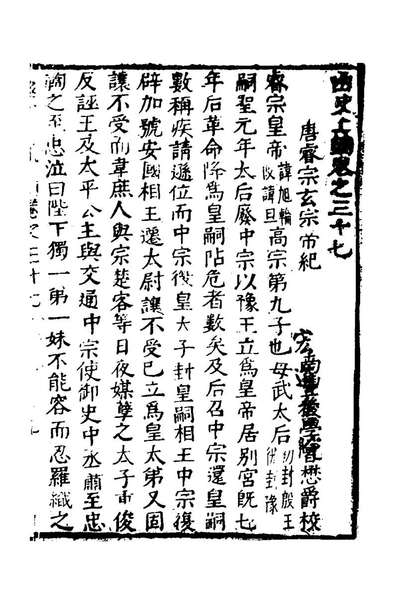 函史上編卷之三十七
唐睿宗玄宗帝紀
南豐後學曾懋爵校
睿宗皇帝諱旭輪改諱旦高宗第九子也母武太后初封殷王徙封豫
嗣聖元年太后廢中宗以豫王立爲皇帝居別宮旣七
年后革命降爲皇嗣阽危者數矣及后召中宗還皇嗣
數稱疾請遜位而中宗復皇太子封皇嗣相王中宗復
辟加號安國相王遷太尉讓不受已立爲皇太弟又固
讓不受而韋庶人與宗楚客等日夜媒孽之太子重俊
反誣王及太平公主與交通中宗使御史中丞蕭至忠
鞫之至忠泣曰陛下獨一弟一妹不能容而忍羅織之